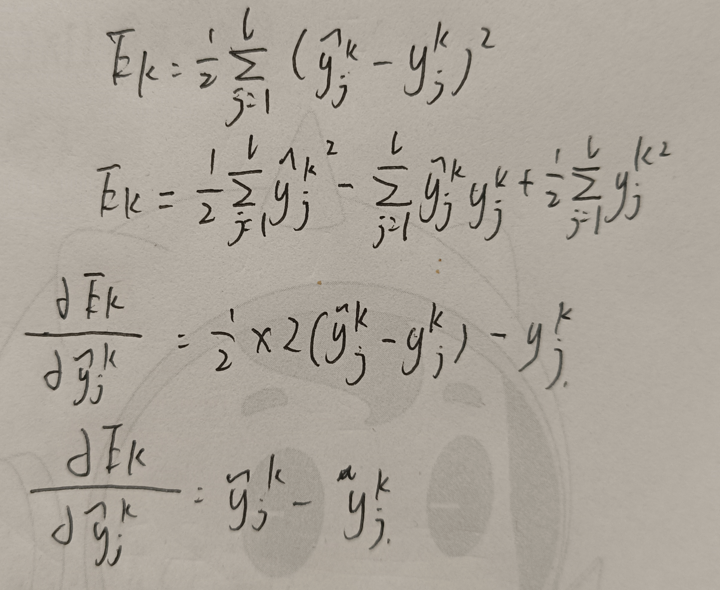 E_k = 1/2 ∑_{j=1}^{l} (ŷ_j^k - y_j^k)^2
E_k = 1/2 ∑_{j=1}^{l} ŷ_j^{k 2} - ∑_{j=1}^{l} ŷ_j^k y_j^k + 1/2 ∑_{j=1}^{l} y_j^{k 2}
∂E_k/∂ŷ_j^k = 1/2 × 2(ŷ_j^k - y_j^k) - y_j^k.
∂E_k/∂ŷ_j^k = ŷ_j^k - y_j^k.